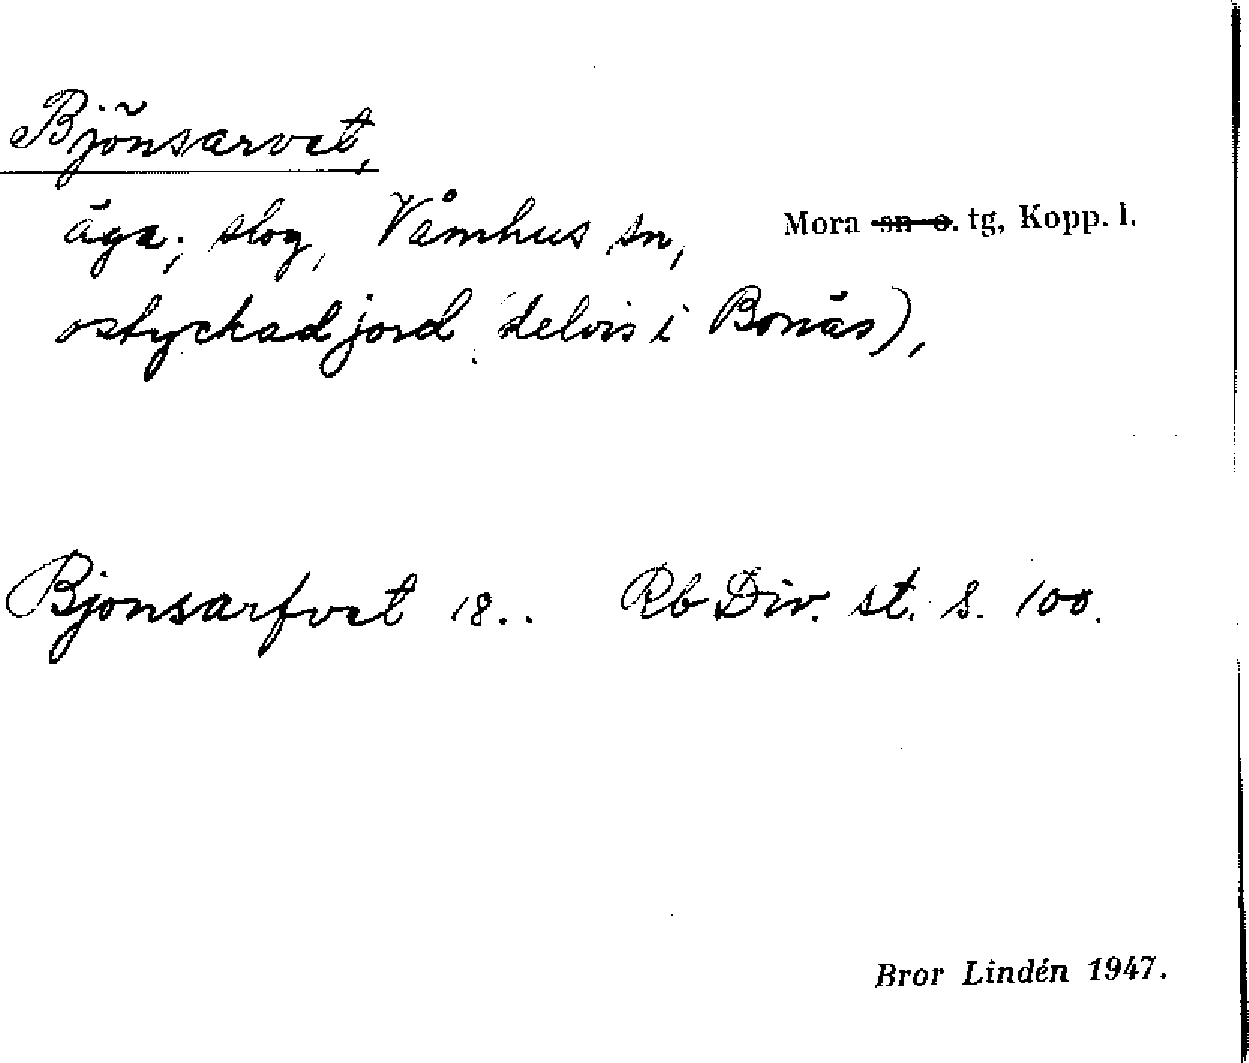 Bjönsarvet,
äga; slog, Våmhus sn, Mora sn o. tg, Kopp. l.
ostyckad jord (delvis i Bonäs),
Bjonsarfvet 18.. Rb Div. st. s. 100.
Bror Lindén 1947.